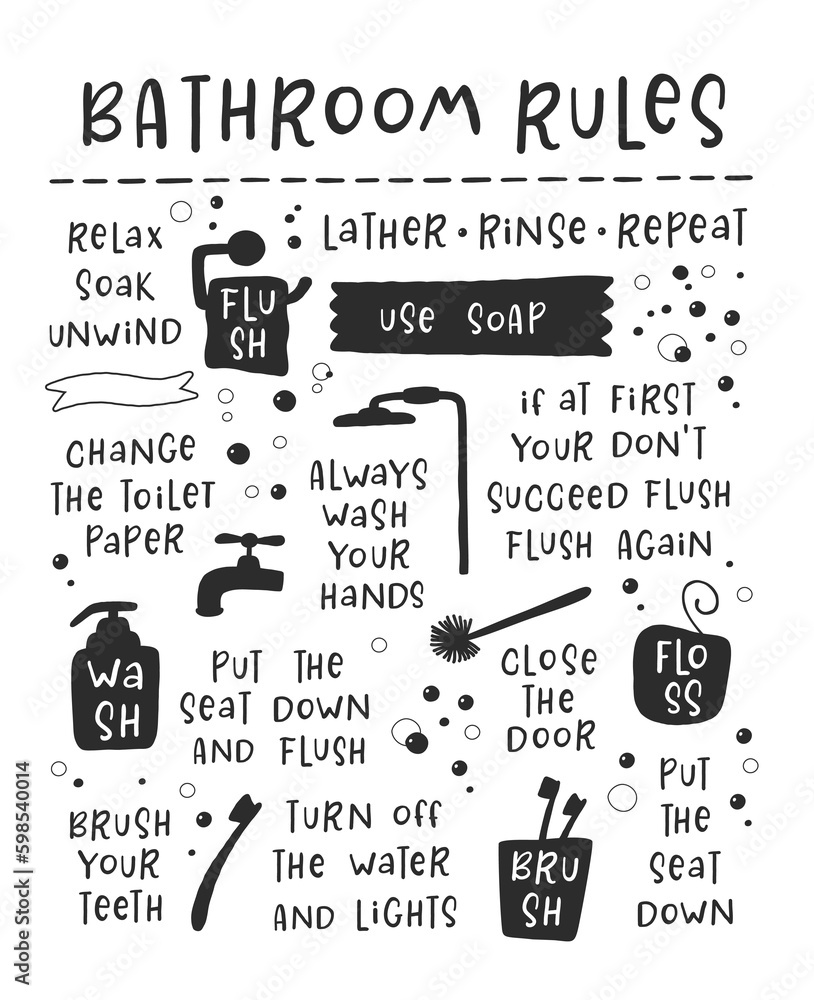 BATHROOM RULES
Relax
Soak
Unwind
FLU
SH
LATHER · RINSE · REPEAT
USE SOAP
CHANGE
THE TOILET
PAPER
ALWAYS
WASH
YOUR
HANDS
IF AT FIRST
YOUR DON'T
SUCCEED FLUSH
FLUSH AGAIN
Wa
SH
PUT THE
SEAT DOWN
AND FLUSH
CLOSE
THE
DOOR
FLO
SS
BRUSH
YOUR
TEETH
TURN OFF
THE WATER
AND LIGHTS
BRU
SH
PUT
THE
SEAT
DOWN
Adobe Stock | #598540014